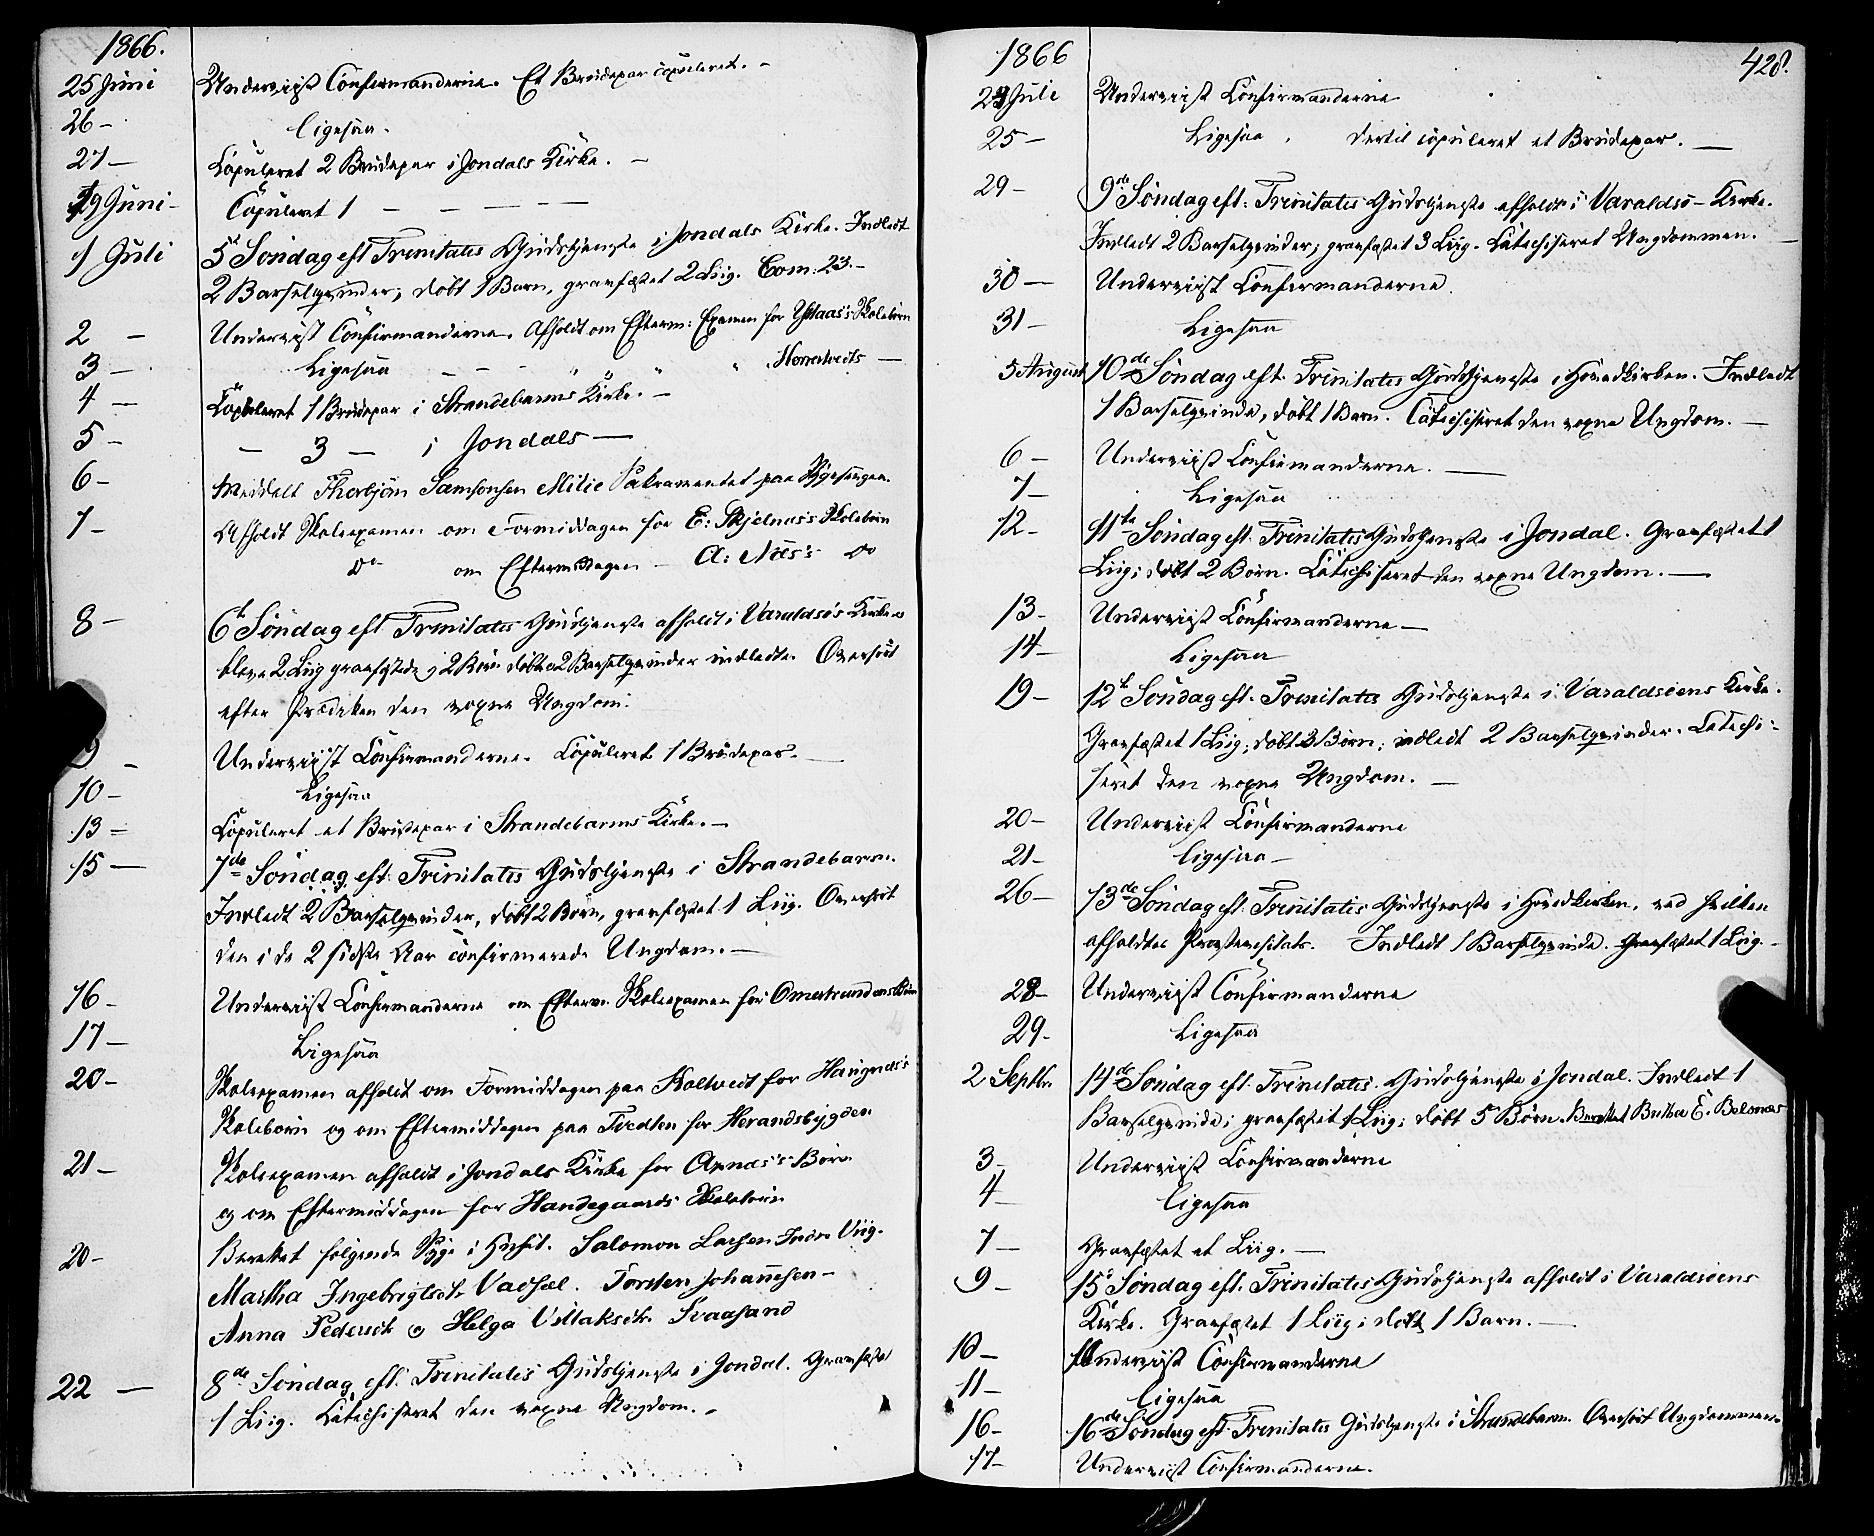 1866.
25 Juni Underviist Confirmanderne. Et Brudepar copuleret. -
26 - ligesaa.
27 - Copuleret 2 Brudepar i Jondals Kirke. -
29 Juni - Copuleret 1 - - - - -
1 Juli 5te Söndag eft Trinitatis Gudstjeneste i Jondals Kirke. Indledt
2 Barselqvinder; döbt 1 Barn, græsfæstet 2 Liig. Com. 23. -
2 - Underviist Confirmanderne. Afholdt om Efterm: Examen for Skolebörn
3 - Ligesaa - - - " " " Herretveits -
4 - Copuleret 1 Brudepar i Strandebarms Kirke. -
5 - - 3 - i Jondals -
6 - Meddelt Thorbjörn Samsonsen Milie Sakramentet paa Sygesengen.
7 - Afholdt Skoleexamen om Formiddagen for E: Skjelnæs's Skolebörn
Do om Eftermiddagen - A: Næs's Do
8 - 6te Söndag eft Trinitatis Gudstjeneste afholdt i Varaldsö's Kirke
bleve 2 Liig græsfæstede, 2 Börn döbte, 2 Barselqvinder indledte. Overhört
efter Prædiken den voxne Ungdom.
9 - Underviist Confirmanderne. Copuleret 1 Brudepar. -
10 - Ligesaa
13 - Copuleret et Brudepar i Strandebarms Kirke. -
15 - 7de Söndag eft. Trinitatis Gudstjeneste i Strandebarm.
Indledt 2 Barselqvinder, döbt 2 Börn, græsfæstet 1 Liig. Overhört
den i de 2 sidste Aar confirmerede Ungdom. -
16 - Underviist Confirmanderne om Efterm. Skoleexamen for Omestrandens Börn
17 - Ligesaa
20 - Skoleexamen afholdt om Formiddagen paa Koltvedt for
Skolebörn og om Eftermiddagen paa Tvedten for Herandsbygden
21 - Skoleexamen afholdt i Jondals Kirke for Börn
og om Eftermiddagen for Handegaards Skolebörn
20 - Berettet fölgende Syge i Huset. Salomon Larsen Indre Viig.
Martha Ingebrigtsdt. Vadsel. Torsten Johannesen -
Anna Pedersdt og Helga Svaasand
22 - 8de Söndag eft. Trinitatis Gudstjeneste i Jondal. Græsfæstet
1 Liig. Catechiseret den voxne Ungdom. -
1866 428.
24 Juli Underviist Confirmanderne
25 - Ligesaa . dertil copuleret et Brudepar. -
29 - 9de Söndag eft. Trinitatis Gudstjeneste afholdt i Varaldsö - Kirke.
Indledt 2 Barselqvinder; græsfæstet 3 Liig. Catechiseret Ungdommen. -
30 - Underviist Confirmanderne.
31 - Ligesaa
5 August 10de Söndag eft. Trinitatis Gudstjeneste i Hovedkirken. Indledt
1 Barselqvinde, döbt 1 Barn. Catechiseret den voxne Ungdom. -
6 - Underviist Confirmanderne. -
7 - Ligesaa
12 - 11te Söndag eft. Trinitatis Gudstjeneste i Jondal. Græsfæstet 1
Liig; döbt 2 Börn. Catechiseret den voxne Ungdom. -
13 - Underviist Confirmanderne -
14 - Ligesaa
19 - 12te Söndag eft. Trinitatis Gudstjeneste i Varaldsöens Kirke.
Græsfæstet 1 Liig; döbt 3 Börn; indledt 2 Barselqvinder. Catechi-
seret den voxne Ungdom. -
20 - Underviist Confirmanderne
21 - ligesaa -
26 - 13de Söndag eft. Trinitatis Gudstjeneste i Hovedkirken, ved hvilken
afholdtes Præstevisitats. Indledt 1 Barselqvinde. Græsfæstet 1 Liig. -
28 - Underviist Confirmanderne
29 - Ligesaa
2 Septbr. 14de Söndag eft. Trinitatis. Gudstjeneste i Jondal. Indledt 1
Barselqvinde; græsfæstet 1 Liig; döbt 5 Börn. Berettet E. Belsnæs
3 - Underviist Confirmanderne
4 - ligesaa
7 - Græsfæstet et Liig. -
9 - 15de Söndag eft. Trinitatis Gudstjeneste afholdt i Varaldsöens
Kirke. Græsfæstet 1 Liig; döbt 1 Barn. -
10 - Underviist Confirmanderne
11 - ligesaa
16 - 16de Söndag eft. Trinitatis Gudstjeneste i Strandebarm. Overhört Ungdommen.
17 - Underviist Confirmanderne.